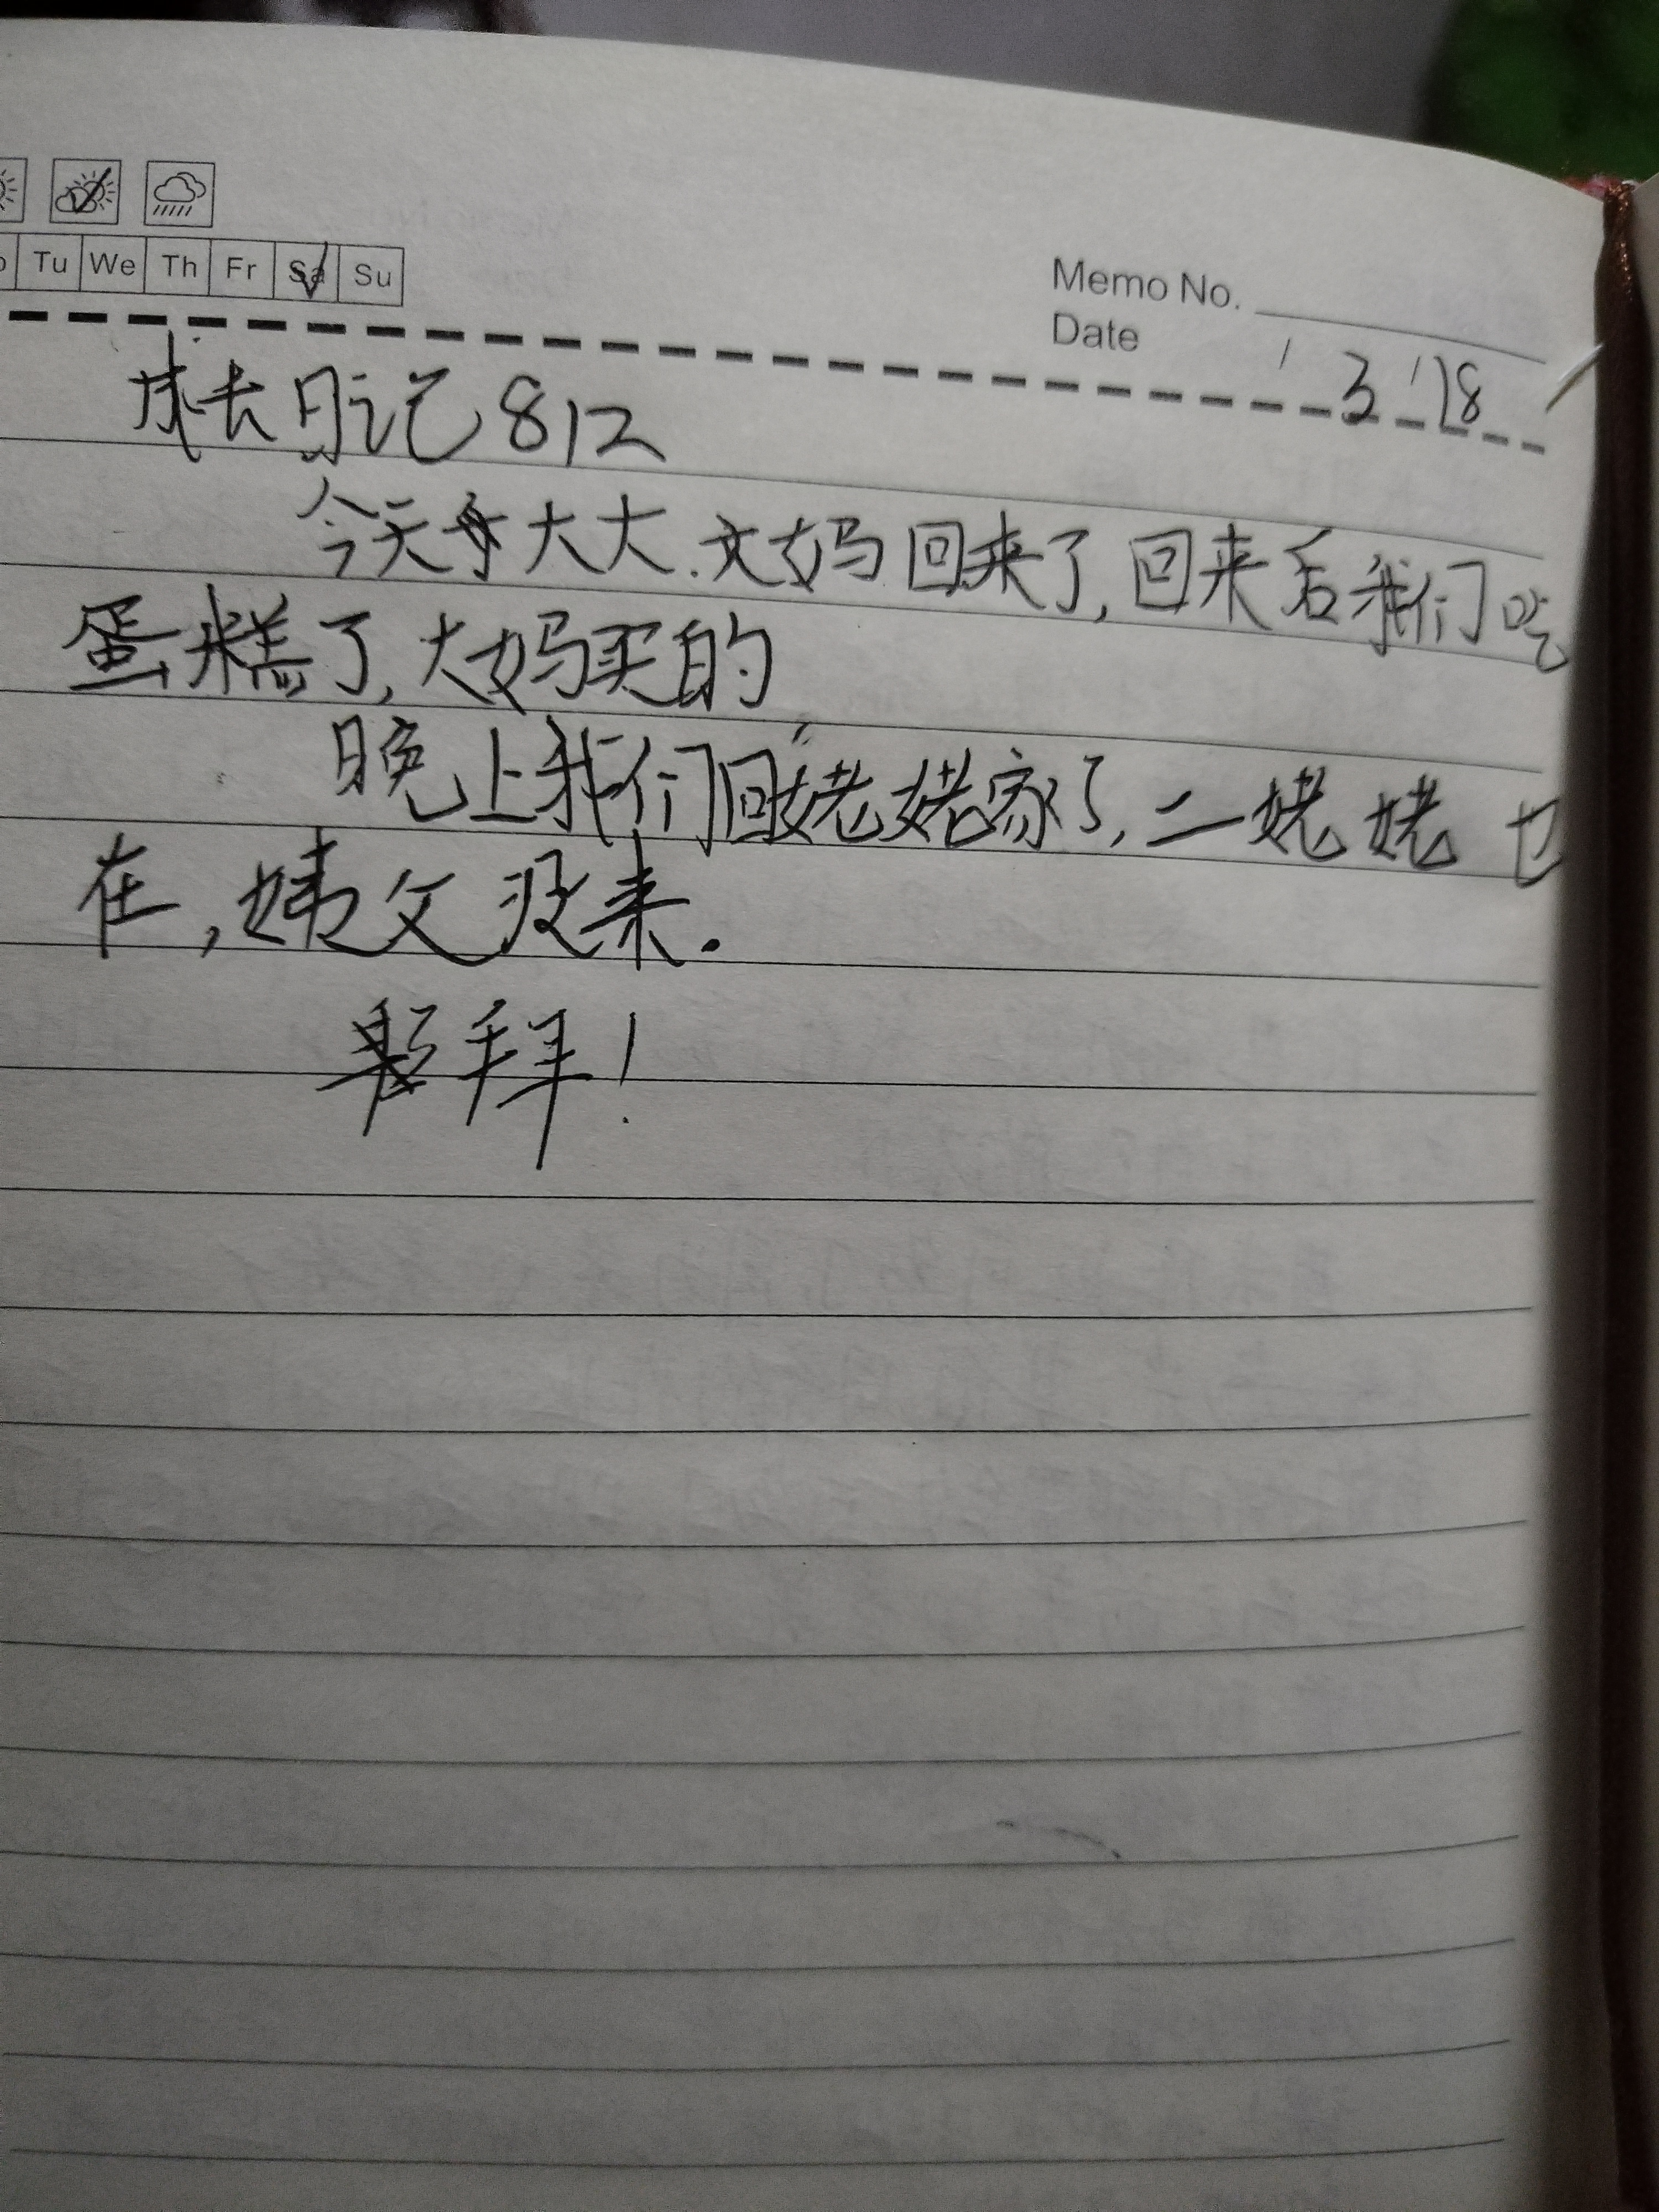 Tu We Th Fr Sa Su
Memo No.
Date 3 18
成长日记812
今天大大.大妈回来了,回来后我们吃
蛋糕了,大妈买的
晚上我们回姥姥家了,二姥姥也
在,姨父没来.
拜!